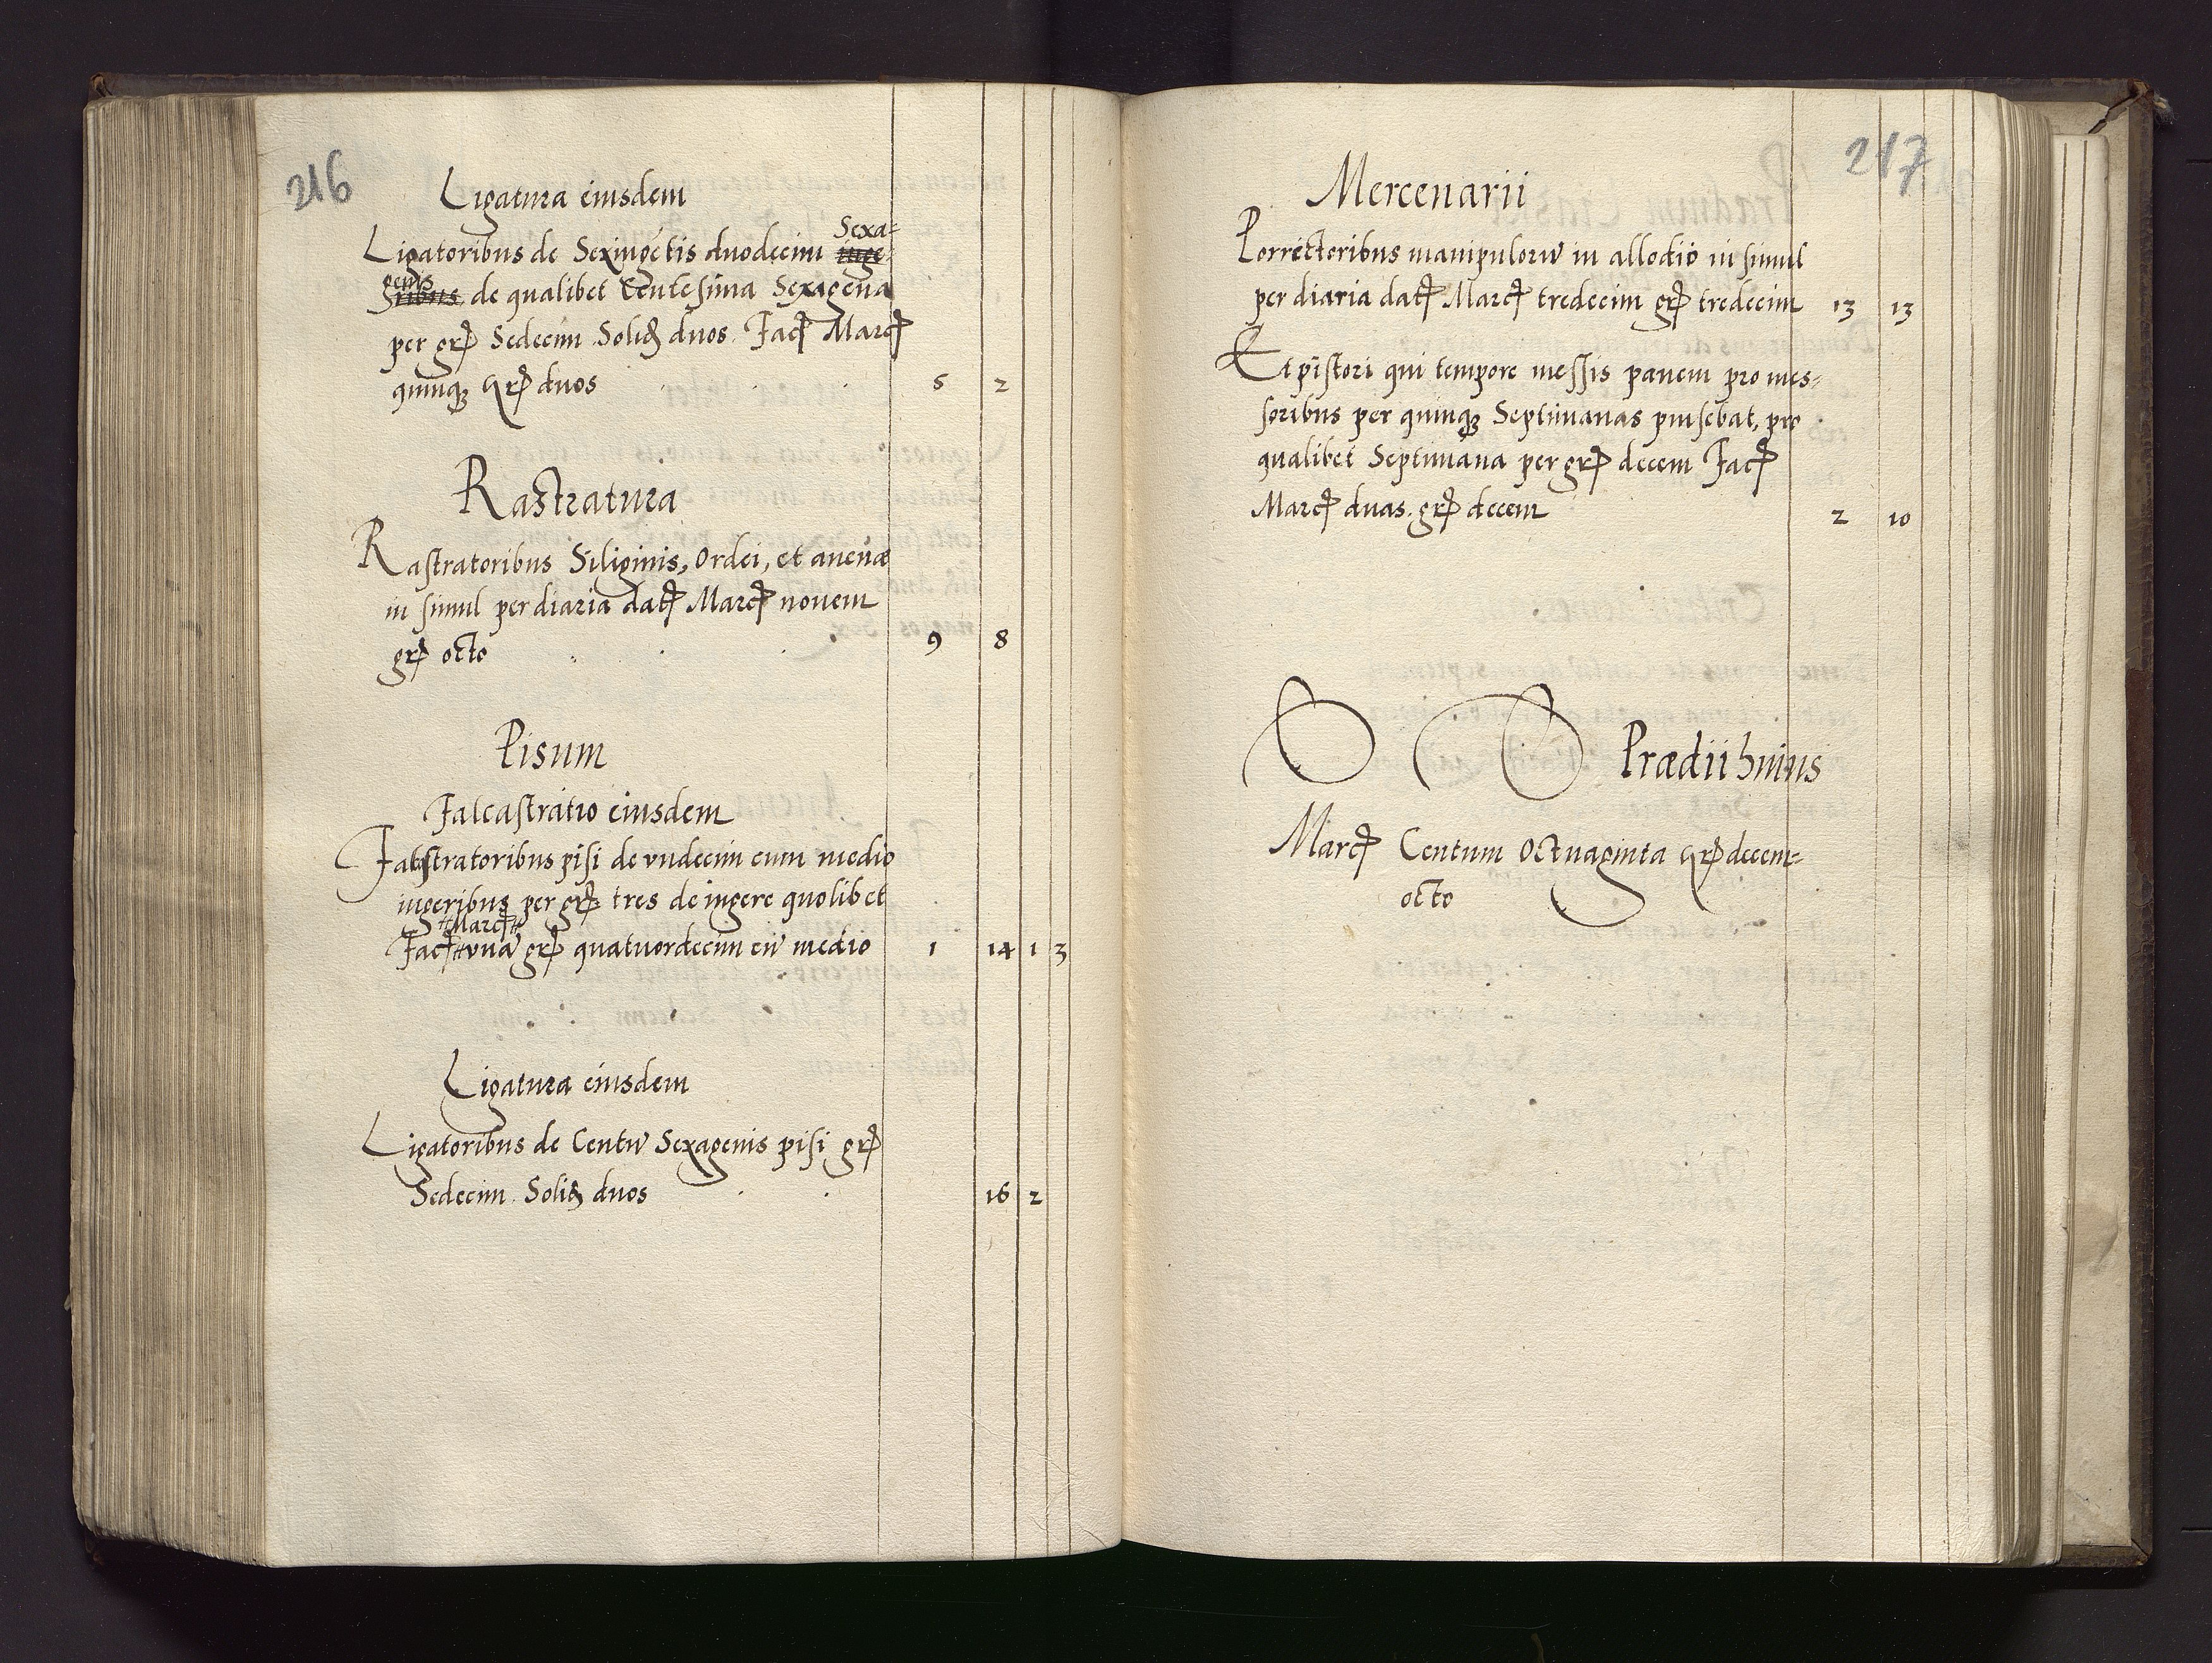 216
Ligatura eiusdem
Sexa=
Ligatoribus de Sexingētis duodecim iuge=
genis
ribus de qualibet Centesima Sexagena
per gr̄ Sedecim Solid̄ duos. Fac̄ Marc̄
quinqꝫ Gr̄ duos . . . 5 2
Rastratura
Rastratoribus Siliginis, Ordei, et auenæ
in simul per diaria dat̄ Marc̄ nouem
gr̄ octo . . . 9 8
Pisum
Falcastratio eiusdem
Falcastratoribus pisi de vndecim cum medio
iugeribus per gr̄ tres de iugere quolibet
Marc̄
Fac̄ vnā gr̄ quatuordecim cū medio 1 14 1 3
Ligatura eiusdem
Ligatoribus de Centū Sexagenis pisi gr̄
Sedecim Solid̄ duos . . 16 2
217
Mercenarii
Porrectoribus manipulorū in allodio in simul
per diaria dat̄ Marc̄ tredecim gr̄ tredecim 13 13
Et pistori qui tempore messis panem pro mes=
soribus per quinqꝫ Septimanas pinsebat, pro
qualibet Septimana per gr̄ decem Fac̄
Marc̄ duas gr̄ decem 2 10
Prædii huius
Marc̄ Centum Octuaginta Gr̄ decem=
octo